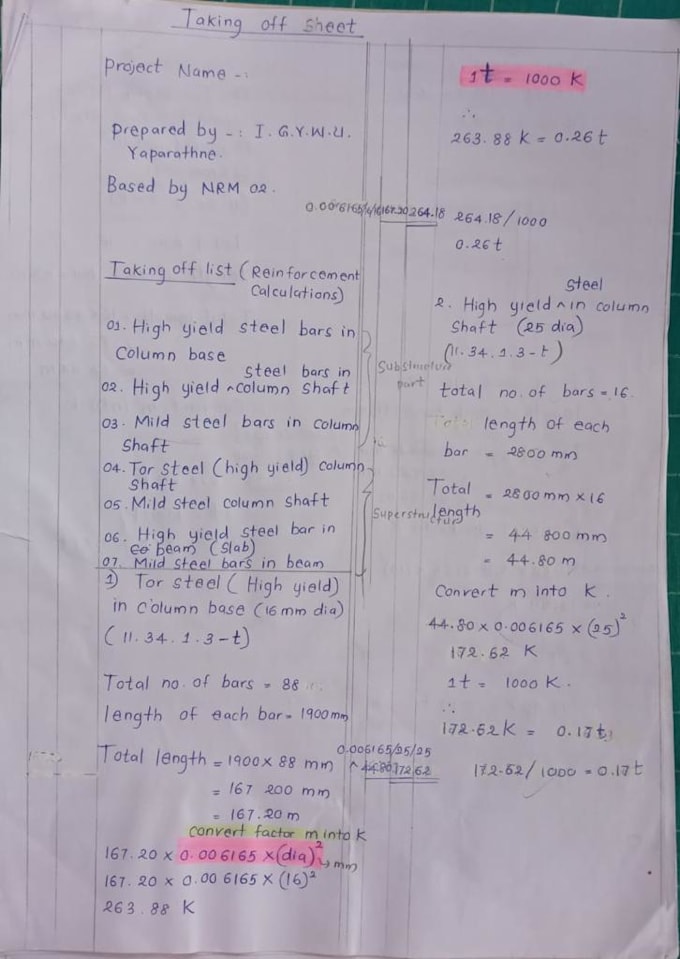 Taking off sheet
Project Name -:
Prepared by -: I. G.Y.W.U.
Yaparathne.
Based by NRM 02.
Taking off list (Reinforcement
Calculations)
01. High yield steel bars in
Column base
steel bars in
02. High yield ^column shaft
03. Mild steel bars in column
shaft
04. Tor steel (high yield) column
shaft
05. Mild steel column shaft
06. High yield steel bar in
beam (slab)
07. Mild steel bars in beam
Substructure
part
Superstructure
1) Tor steel ( High yield)
in column base (16 mm dia)
( 11. 34. 1. 3-t)
Total no. of bars = 88
length of each bar = 1900mm
Total length = 1900 x 88 mm
= 167 200 mm
= 167.20 m
convert factor m into K
167.20 x 0.006165 x (dia)² → mm
167.20 x 0.006165 x (16)²
263.88 K
1t = 1000 K
∴
263.88 K = 0.26t
0.006165/16/16 167.20 264.18
264.18/1000
0.26t
steel
2. High yield ^ in column
shaft (25 dia)
(11. 34. 1. 3-t)
total no. of bars = 16.
length of each
bar = 2800 mm
Total
length = 2800 mm x 16
= 44 800 mm
= 44.80 m
Convert m into K.
44.80 x 0.006165 x (25)²
172.62 K
1t = 1000 K.
∴
172.62K = 0.17t
0.006165/25/25
44.80 172.62
172.62/1000 = 0.17t